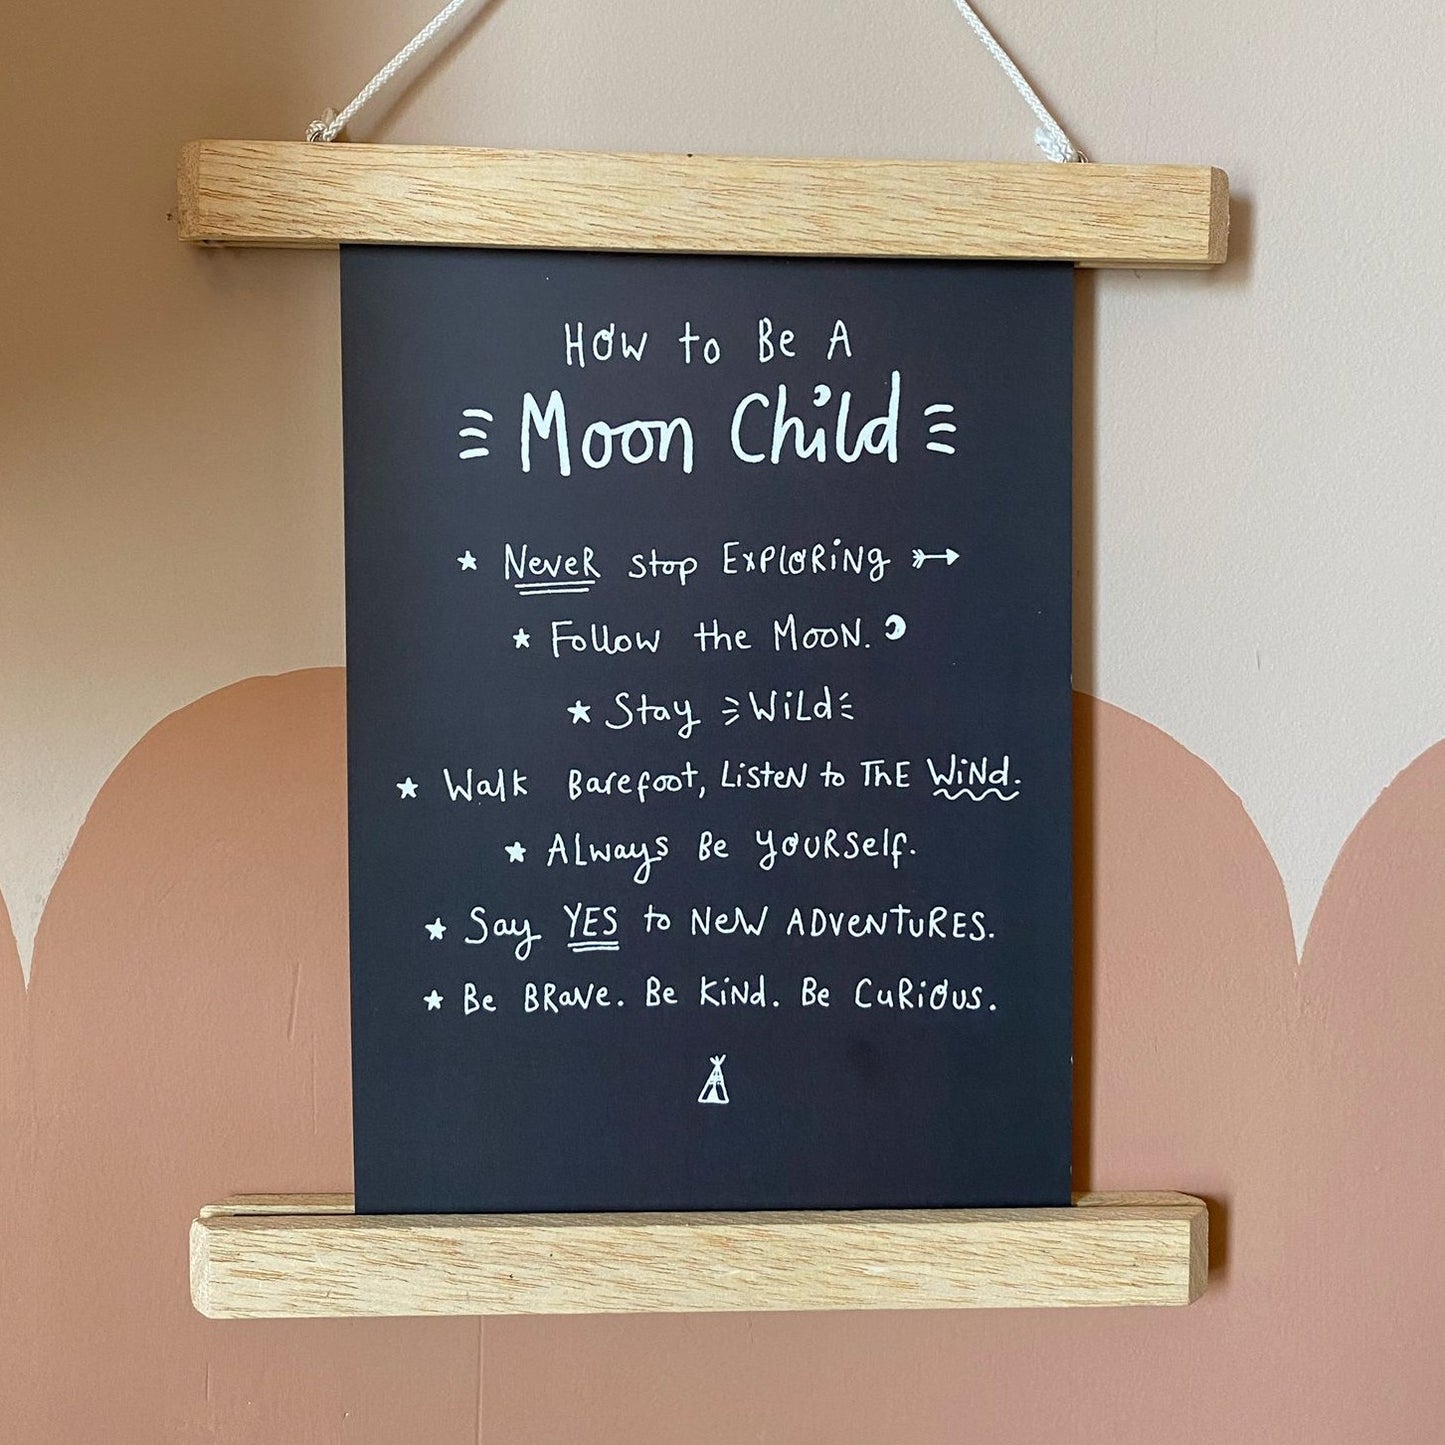 How to Be A
Moon Child
Never stop Exploring
Follow the Moon.
Stay Wild
Walk Barefoot, Listen to The Wind.
Always Be Yourself.
Say YES to New ADVENTURES.
Be Brave. Be Kind. Be Curious.